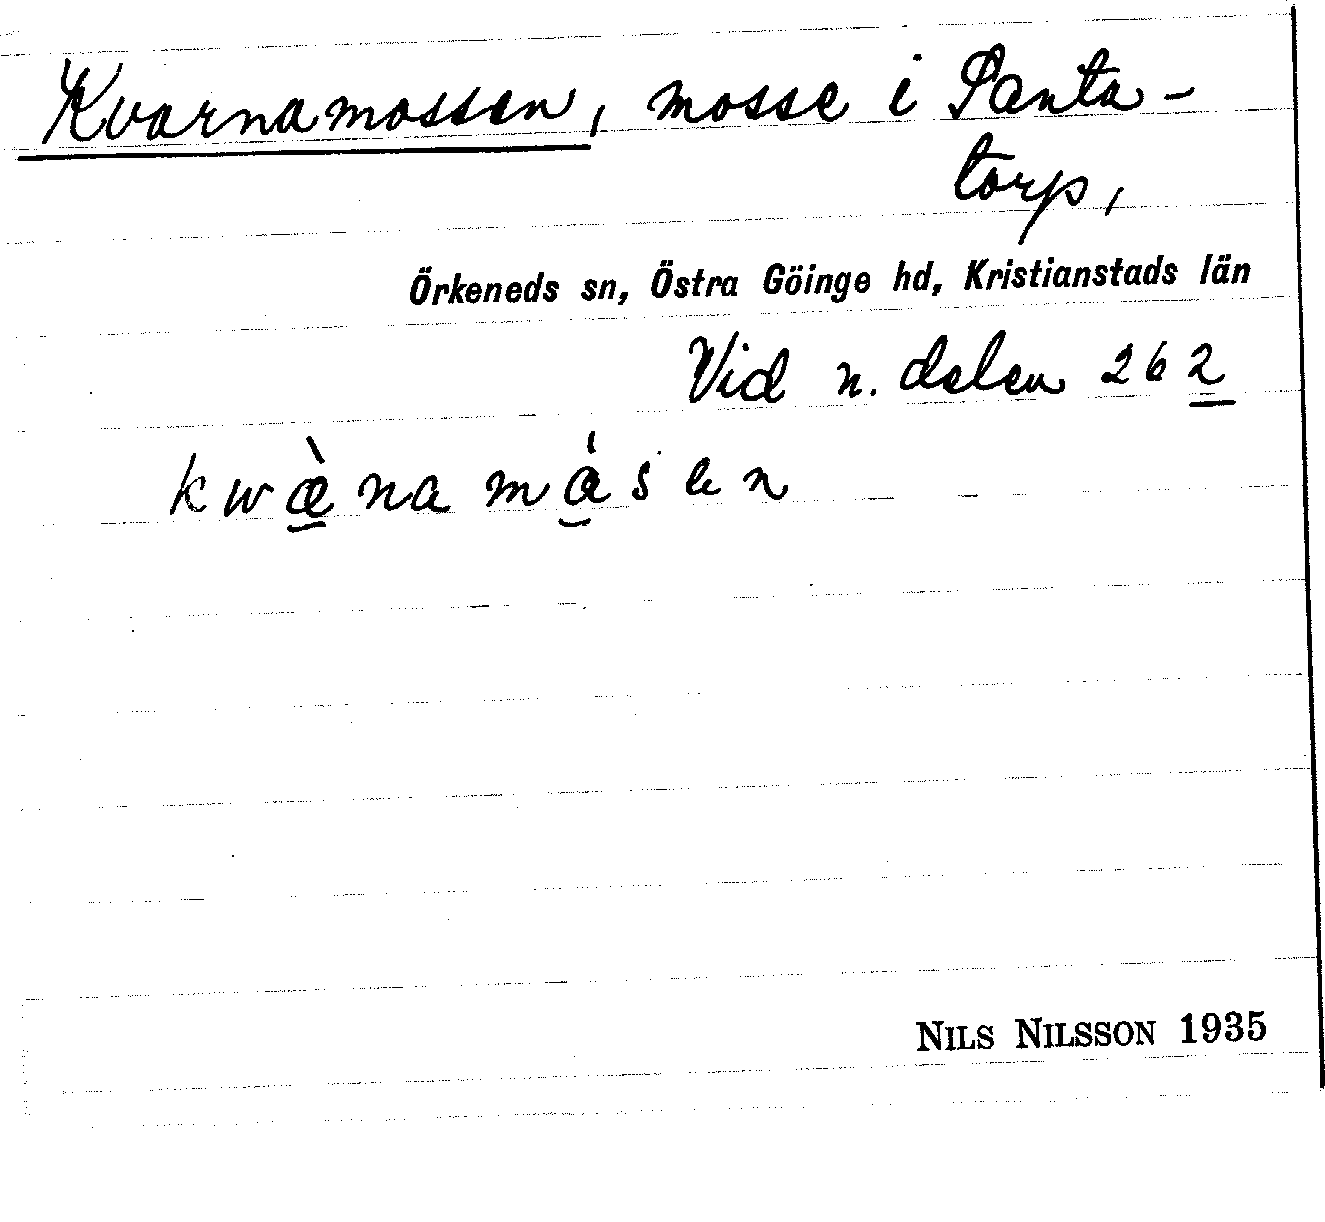 Kvarnamossen, mosse i Panta-
torp,
Örkeneds sn, Östra Göinge hd, Kristianstads län
Vid n. delen 262
kwæ̀namåsen
NILS NILSSON 1935